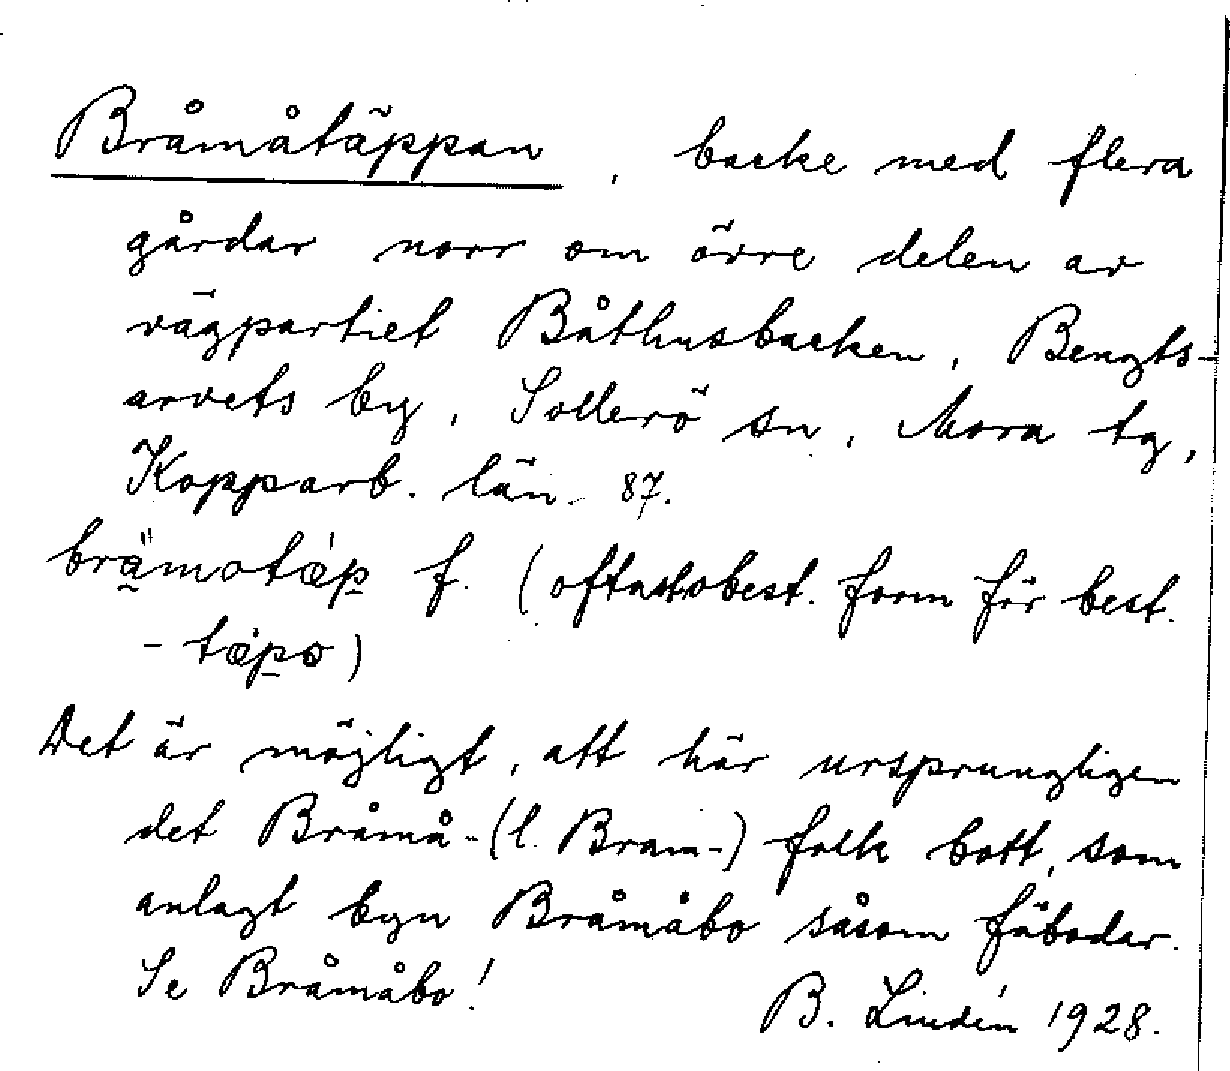 Bråmåtäppan, backe med flera
gårdar norr om övre delen av
vägpartiet Båthusbacken, Bengts-
arvets by, Sollerö sn, Mora tg,
Kopparb. län. 87.
brä̱motæ̀p̱ f. (oftast obest. form för best.
- tæ̀p̱o)
Det är möjligt, att här ursprungligen
det Bråmå-(l. Bram-) folk bott, som
anlagt byn Bråmåbo såsom fäbodar.
Se Bråmåbo!
B. Lindén 1928.